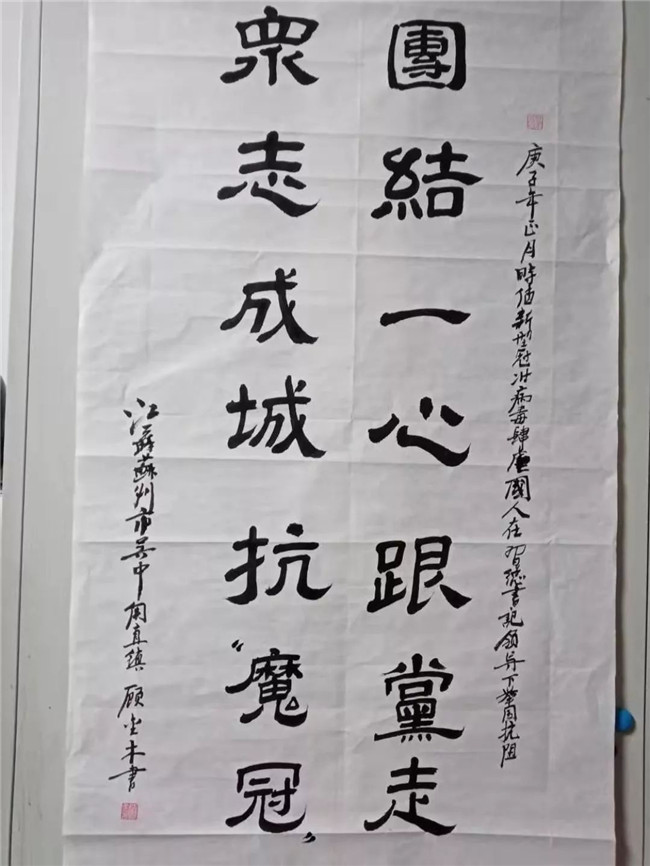 庚子年正月時值新型冠状病毒肆虐國人在习總書記領导下举国抗阻
團結一心跟黨走
衆志成城抗“魔冠”
江蘇蘇州市吴中甪直鎮 顾木書